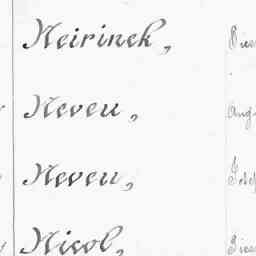 Neirinck,
Neveu,
Neveu,
Nicol,